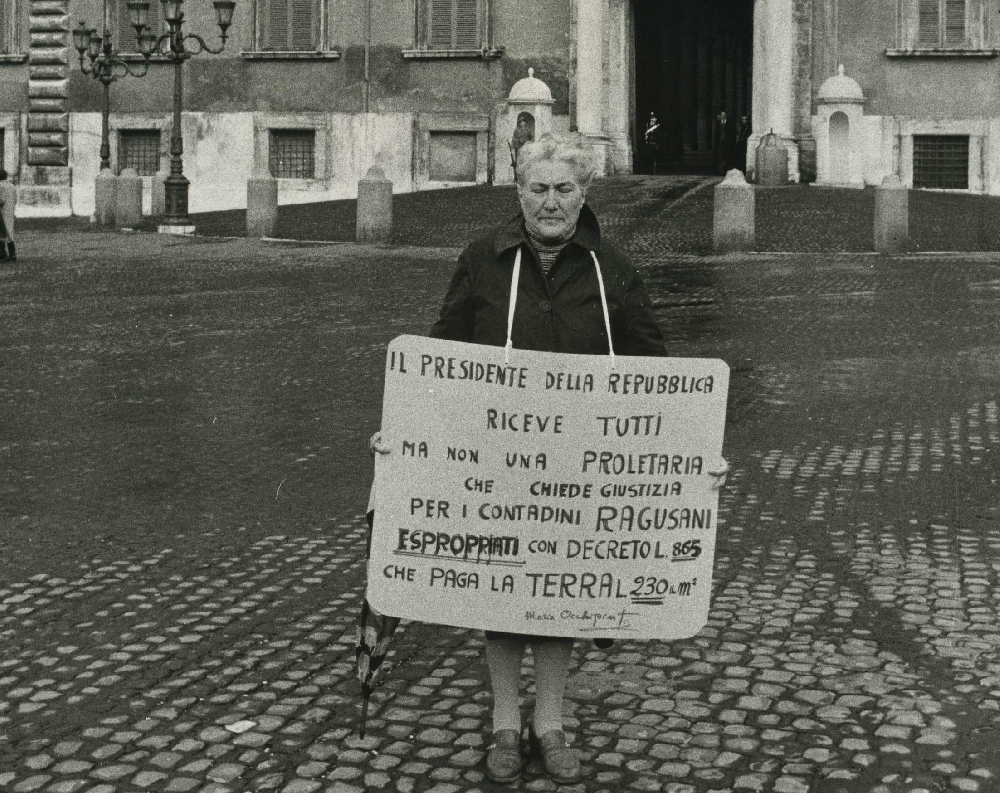 IL PRESIDENTE DELLA REPUBBLICA
RICEVE TUTTI
MA NON UNA PROLETARIA
CHE CHIEDE GIUSTIZIA
PER I CONTADINI RAGUSANI
ESPROPRIATI CON DECRETO L. 865
CHE PAGA LA TERRA L 230 a m²
Maria Occhipinti